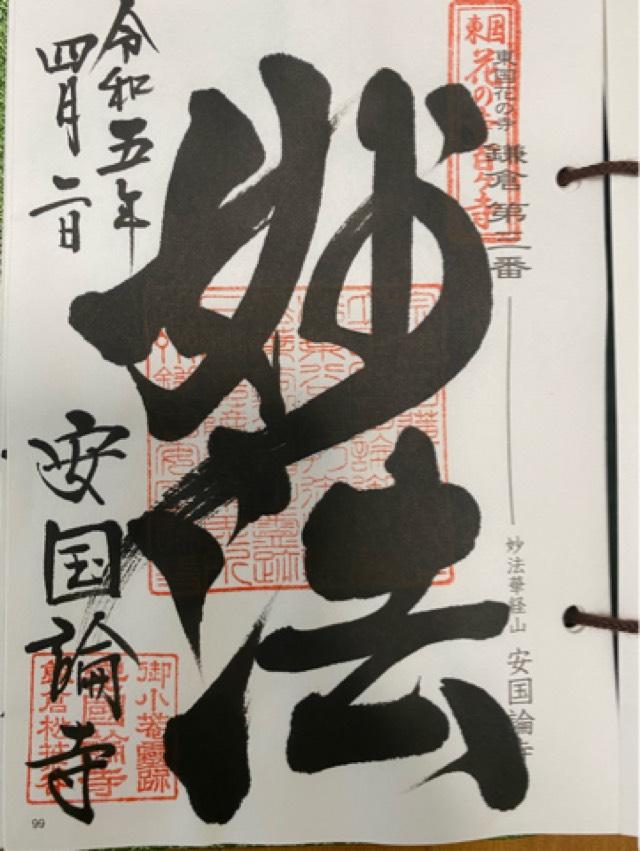 東国花の寺 鎌倉第二番
妙法華経山 安国論寺
東国
花の寺百ヶ寺
妙法
令和五年
四月二日
安国論寺
御小菴霊跡
99